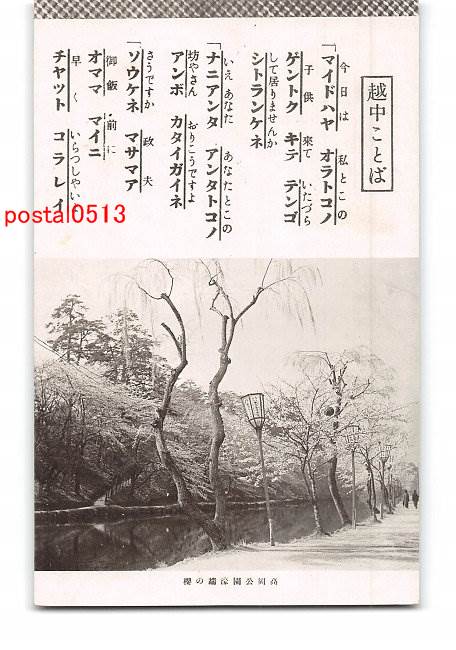 越中ことば
今日は 私とこの
「マイドハヤ オラトコノ
子供 來て いたづら
ゲントク キテ テンゴ
して居りませんか
シトランケネ
いえ あなた あなたとこの
「ナニアンタ アンタトコノ
坊やさん おりこうですよ
アンボ カタイガイネ
さうですか 政夫
「ソウケネ マサマア
御飯 前に
オママ マイニ
早く いらつしやい
チヤット コラレイ
postal0513
高岡公園濠端の櫻